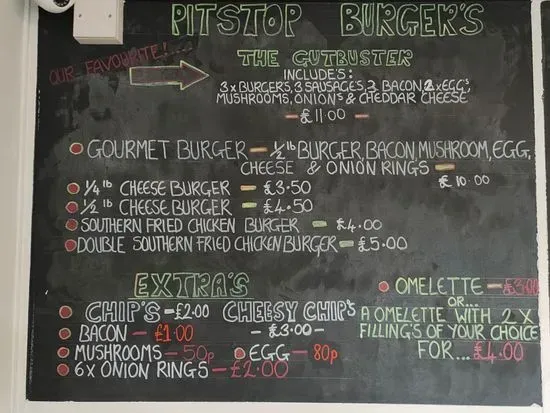 PITSTOP BURGER'S
OUR FAVOURITE!
THE GUTBUSTER
INCLUDES:
3 x BURGERS, 3 SAUSAGES, 3 BACON, 2 x EGG'S,
MUSHROOMS, ONION'S & CHEDDAR CHEESE
- £11.00 -
GOURMET BURGER - 1/2 lb BURGER, BACON, MUSHROOM, EGG,
CHEESE & ONION RINGS -
£10.00
1/4 lb CHEESE BURGER - £3.50
1/2 lb CHEESE BURGER - £4.50
SOUTHERN FRIED CHICKEN BURGER - £4.00
DOUBLE SOUTHERN FRIED CHICKEN BURGER - £5.00
EXTRA'S
CHIP'S - £2.00 CHEESY CHIP'S
- £3.00 -
BACON - £1.00
MUSHROOMS - 50p EGG - 80p
6 x ONION RINGS - £2.00
OMELETTE - £3.00
OR...
A OMELETTE WITH 2 X
FILLING'S OF YOUR CHOICE
FOR... £4.00